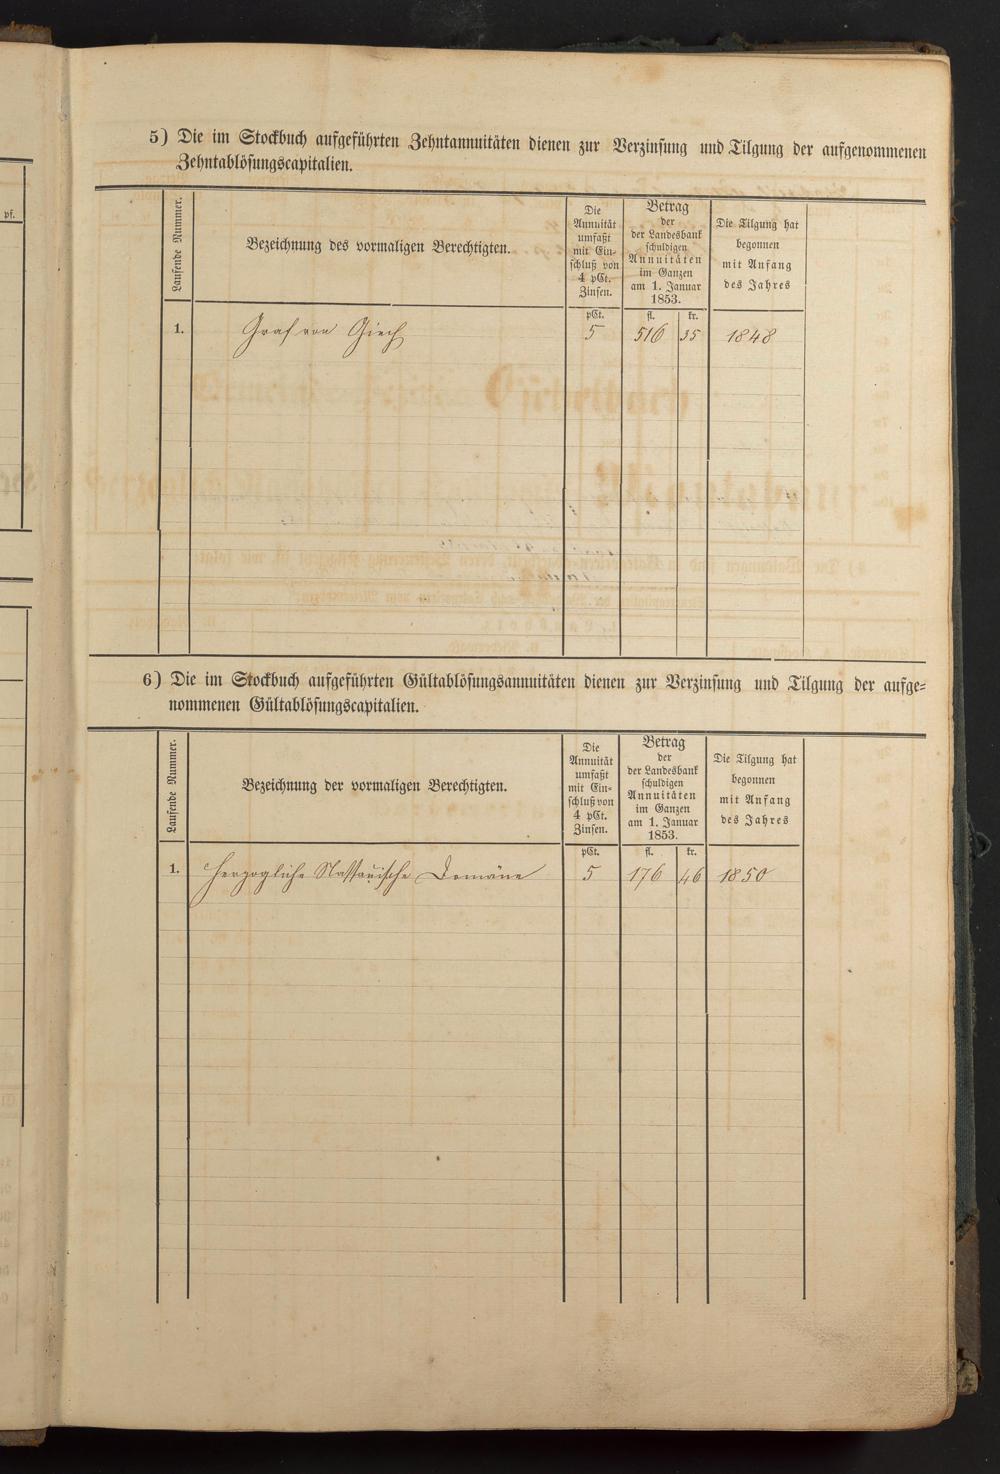 5) Die im Stockbuch aufgeführten Zehntannuitäten dienen zur Verzinsung und Tilgung der aufgenommenen
Zehntablösungscapitalien.
Laufende Nummer.
Bezeichnung des vormaligen Berechtigten.
Die
Annuität
umfaßt
mit Ein-
schluß von
4 pCt.
Zinsen.
Betrag
der
der Landesbank
schuldigen
Annuitäten
im Ganzen
am 1. Januar
1853.
Die Tilgung hat
begonnen
mit Anfang
des Jahres
pCt. fl. kr.
1. Graf von Giech 5 516 35 1848
6) Die im Stockbuch aufgeführten Gültablösungsannuitäten dienen zur Verzinsung und Tilgung der aufge-
nommenen Gültablösungscapitalien.
Laufende Nummer.
Bezeichnung der vormaligen Berechtigten.
Die
Annuität
umfaßt
mit Ein-
schluß von
4 pCt.
Zinsen.
Betrag
der
der Landesbank
schuldigen
Annuitäten
im Ganzen
am 1. Januar
1853.
Die Tilgung hat
begonnen
mit Anfang
des Jahres
pCt. fl. kr.
1. Herzogliche Nassauische Domäne 5 176 46 1850
pf.